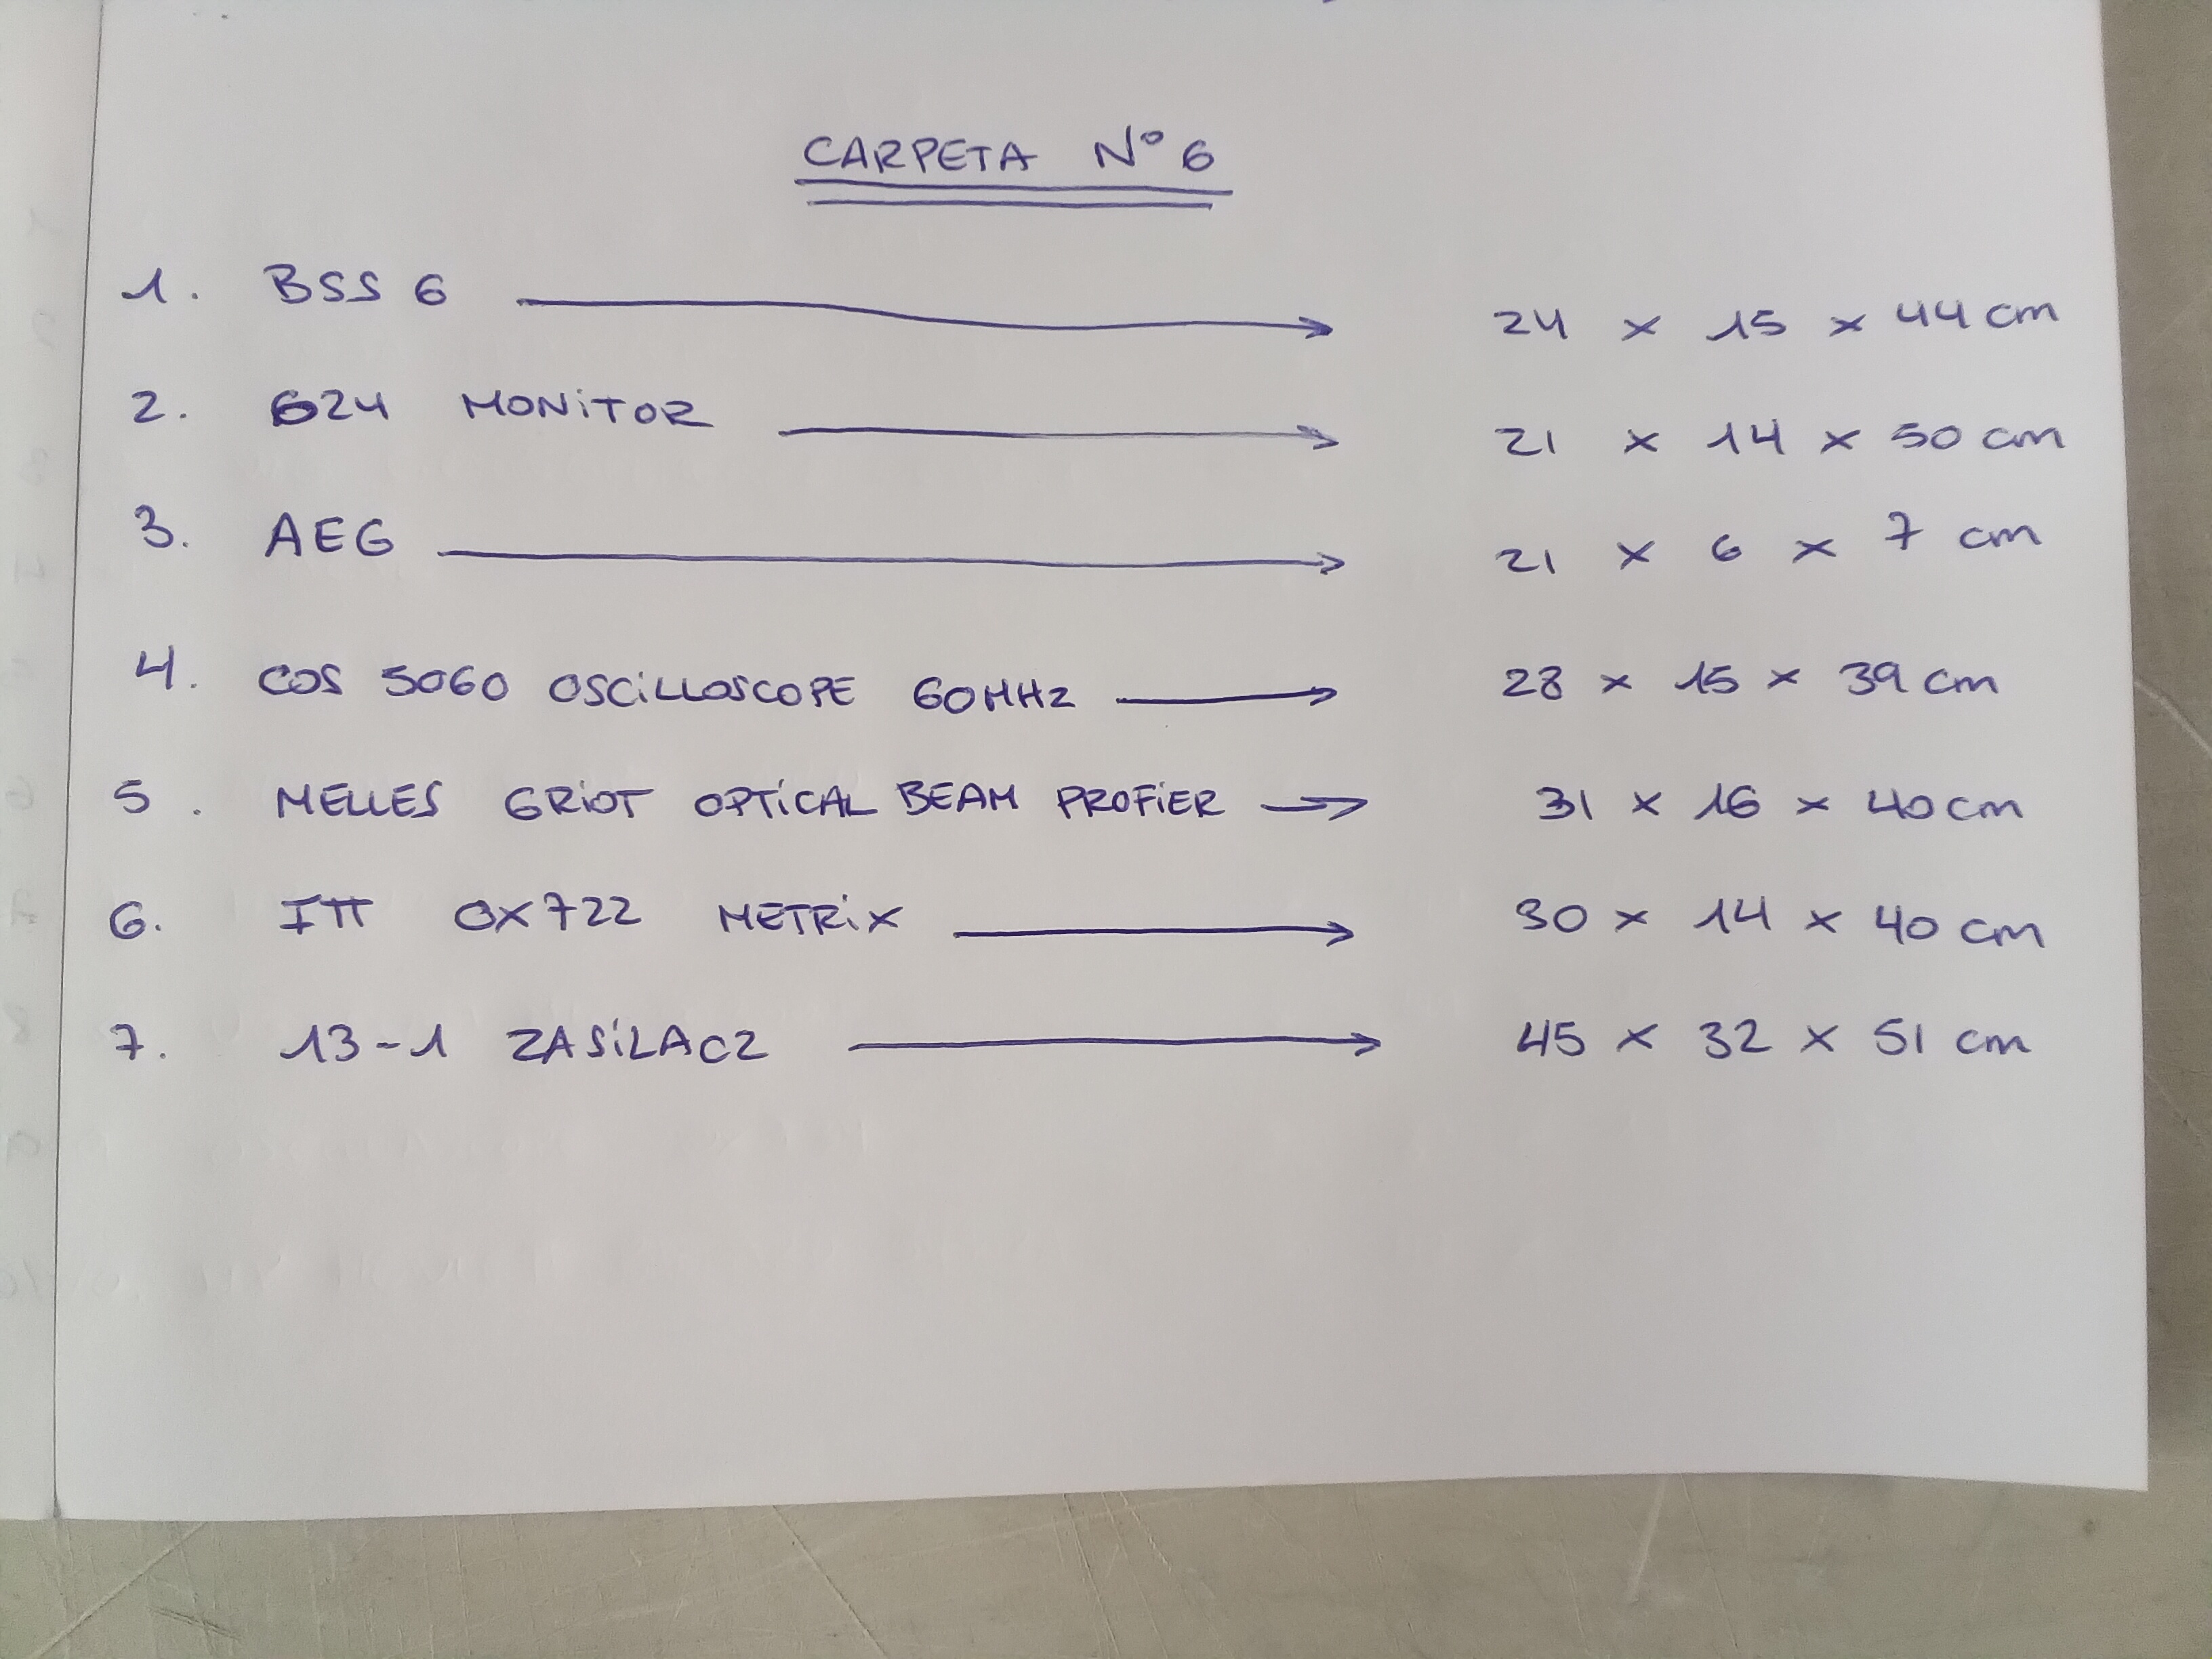 CARPETA Nº 6
1. BSS 6 → 24 x 15 x 44 cm
2. 624 MONiTOR → 21 x 14 x 50 cm
3. AEG → 21 x 6 x 7 cm
4. COS 5060 OSCiLLOSCOPE 60MHz → 28 x 15 x 39 cm
5. MELLES GRiOT OPTiCAL BEAM PROFiER → 31 x 16 x 40 cm
6. ITT OX722 METRiX → 30 x 14 x 40 cm
7. 13-1 ZASiLACZ → 45 x 32 x 51 cm